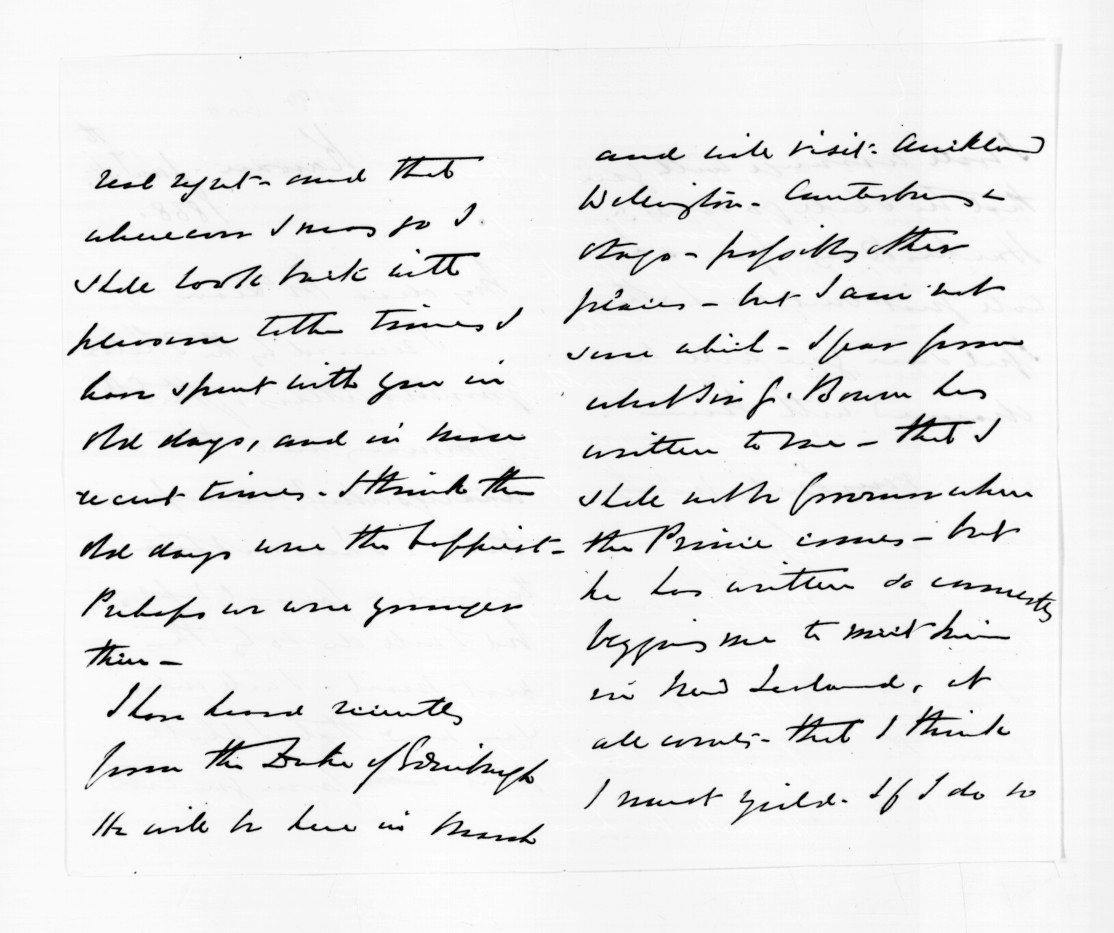 real regret - and that
wherever I may go I
shall look back with
pleasure to the times I
have spent with you in
old days, and in more
recent times - I think the
old days were the happiest -
Perhaps we were younger
then -
I have heard recently
from the Duke of Edinburgh
He will be here in March
and will visit - Auckland
Wellington - Canterbury -
Otago - possibly other
places - but I am not
sure which - I fear from
what Sir G. Bowen has
written to me - that I
shall not be Governor when
the Prince comes - but
he has written so earnestly
begging me to meet him
in New Zealand, at
all events - that I think
I must yield - If I do so